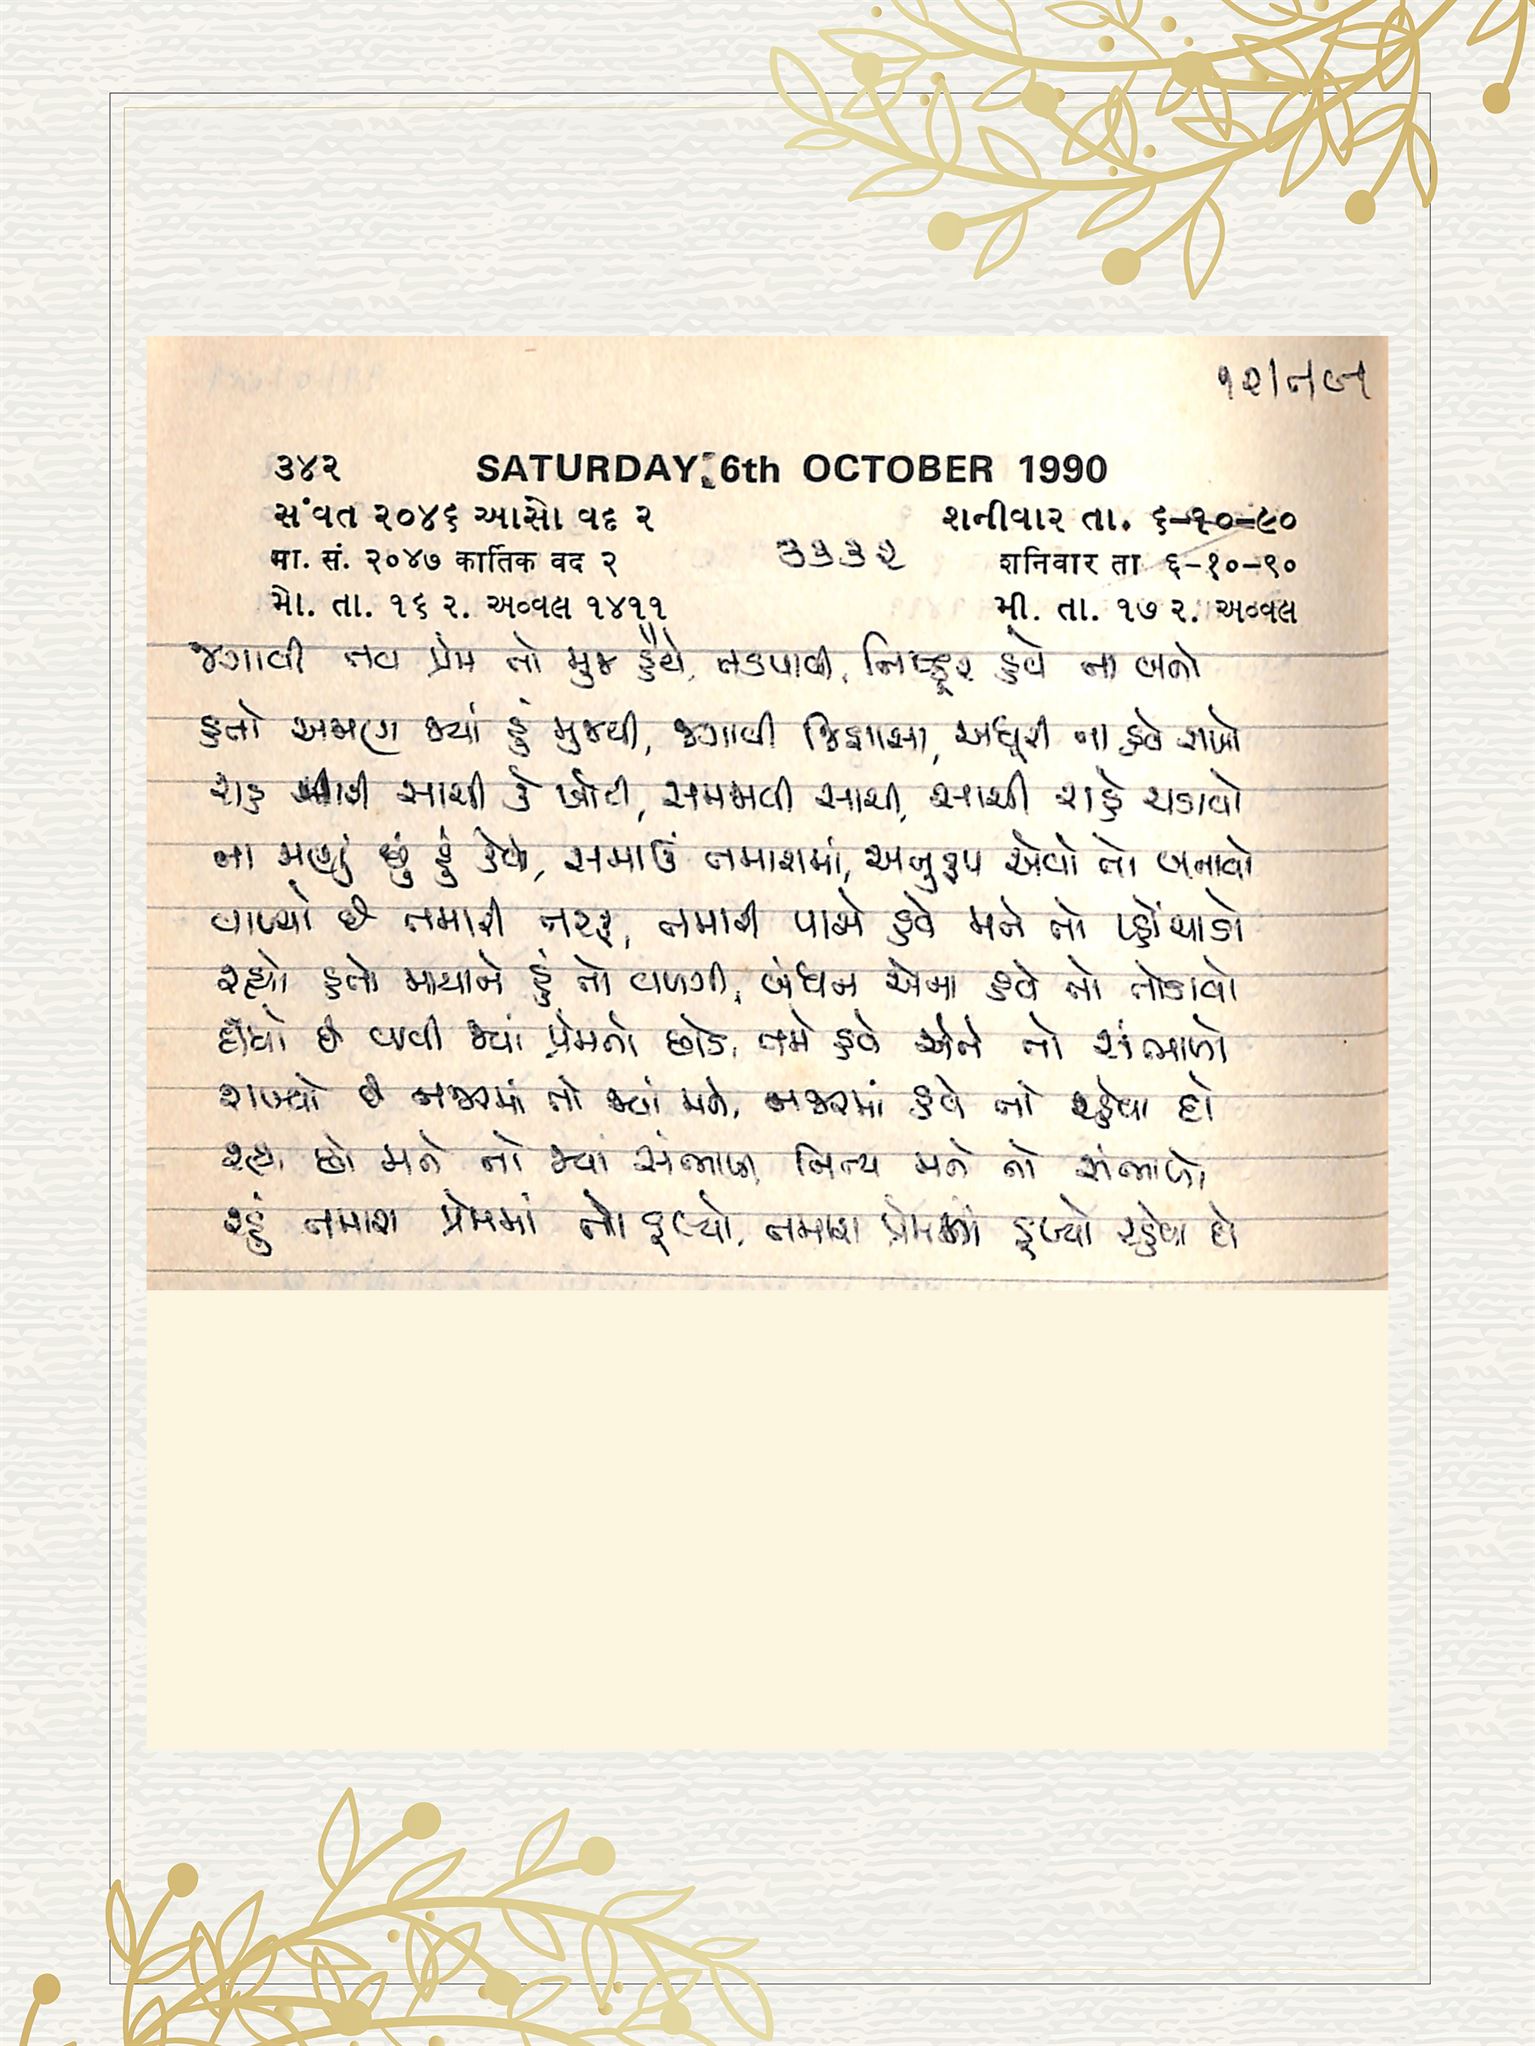 ૧૨/ન/બ
૩૪૨ SATURDAY, 6th OCTOBER 1990
સંવત ૨૦૪૬ આસો વદ ૨ શનીવાર તા. ૬-૧૦-૯૦
मा. सं. २०४७ कार्तिक वद २ ૩૩૩૨ शनिवार ता ६-१०-९०
મો. તા. ૧૬ ર. અવ્વલ ૧૪૧૧ મી. તા. ૧૭ ર. અવ્વલ
જગાવી તવ પ્રેમ તો મુજ હૈયે, તડપાવી, નિષ્ઠૂર હવે ના બનો
હતો અજાણ જ્યાં હું મુજથી, જગાવી જિજ્ઞાસા, અધૂરી ના હવે રાખો
રાહ સાચી કે ખોટી, સમજાવી સાચી, સાચી રાહે ચડાવો
ના જાણું છું હું કેવો, સમાઉં તમારામાં, અનુરૂપ એવો તો બનાવો
વાળ્યો છે તમારી તરફ, તમારી પાસે હવે મને તો પ્હોંચાડો
રહ્યો હતો માયાને હું તો વળગી, બંધન એના હવે તો તોડાવો
દીધો છે વાવી જ્યાં પ્રેમનો છોડ, તમે હવે એને તો સંભાળો
રાખ્યો છે નજરમાં તો જ્યાં મને, નજરમાં હવે તો રહેવા દો
રહ્યા છો મને તો જ્યાં સંભાળી, નિત્ય મને તો સંભાળો
રહું તમારા પ્રેમમાં તો ડૂબ્યો, તમારા પ્રેમમાં ડૂબ્યો રહેવા દો